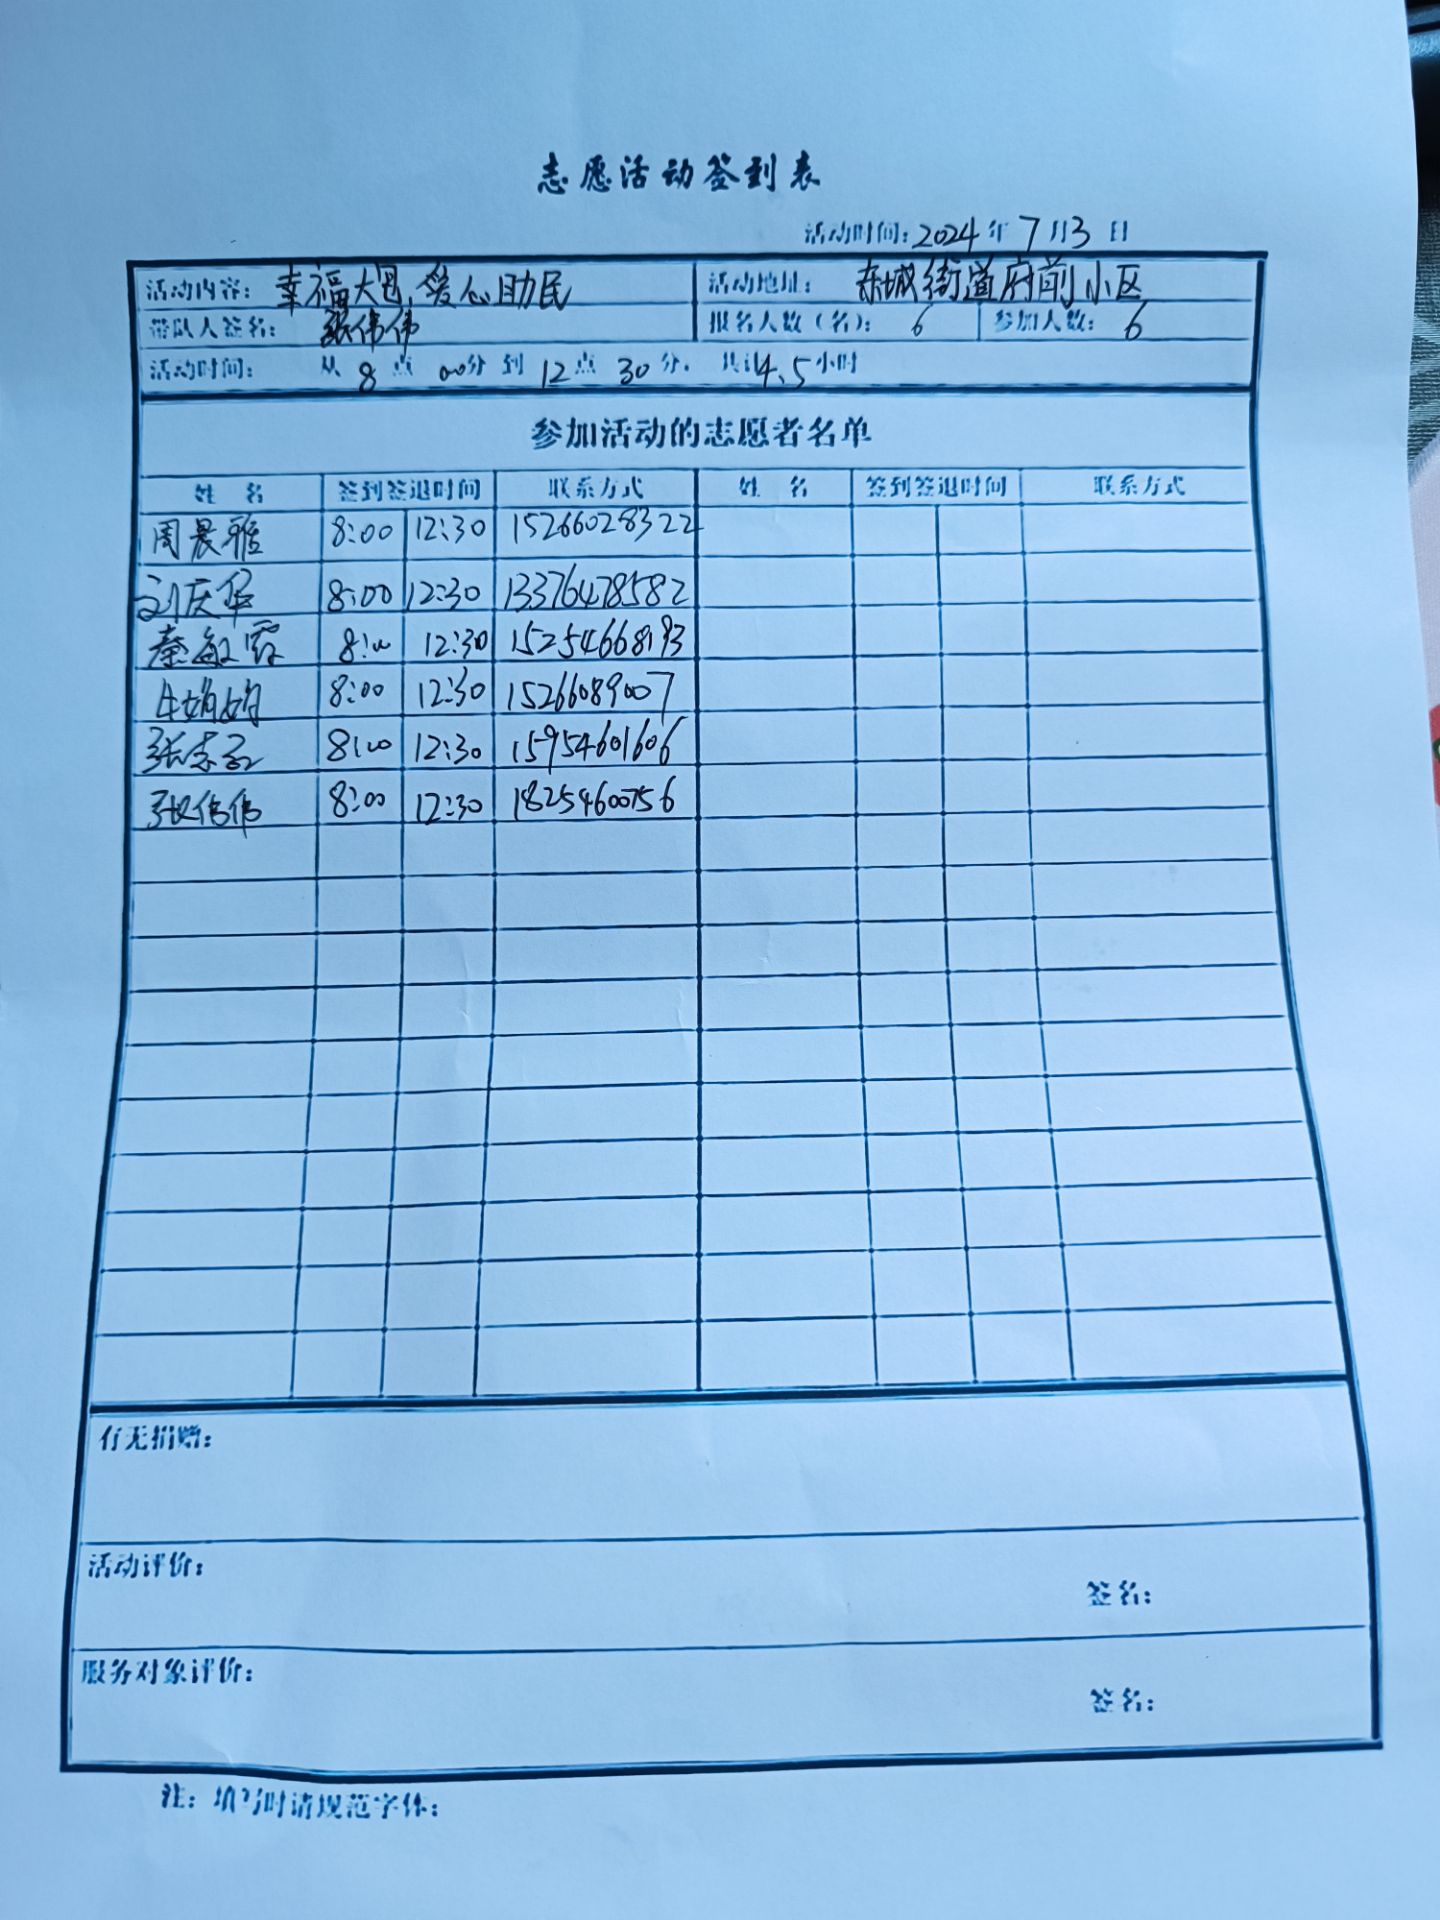 志愿活动签到表
活动时间：2024年7月3日
活动内容：幸福大集，爱心助民 活动地址：东城街道府前小区
带队人签名：张伟伟 报名人数（名）：6 参加人数：6
活动时间：从8点00分到12点30分，共计4.5小时
参加活动的志愿者名单
姓 名 签到签退时间 联系方式 姓 名 签到签退时间 联系方式
周晨雅 8:00 12:30 15266028322
刘庆华 8:00 12:30 13376478582
秦敏霞 8:00 12:30 15254668193
牛娟娟 8:00 12:30 15266089007
张 8:00 12:30 15954601606
张伟伟 8:00 12:30 18254600756
有无捐赠：
活动评价：
签名：
服务对象评价：
签名：
注：填写时请规范字体：